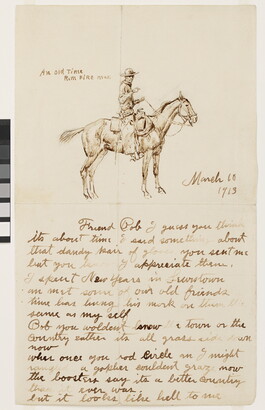 An old time
March 10
1913
Friend Bob I guess you
its about time I said about
that dandy pair of you sent me
but you I appreciate them.
I spent New Years in
an met some of our old friends
time has hung his mark on them the
same as my self
Bob you woldent know the town or the
country eather its all grass side down
now
wher once you rod circle an I night
a gopher couldent graze now
the boosters say its a better country
than ever was
but it looks like hell to me